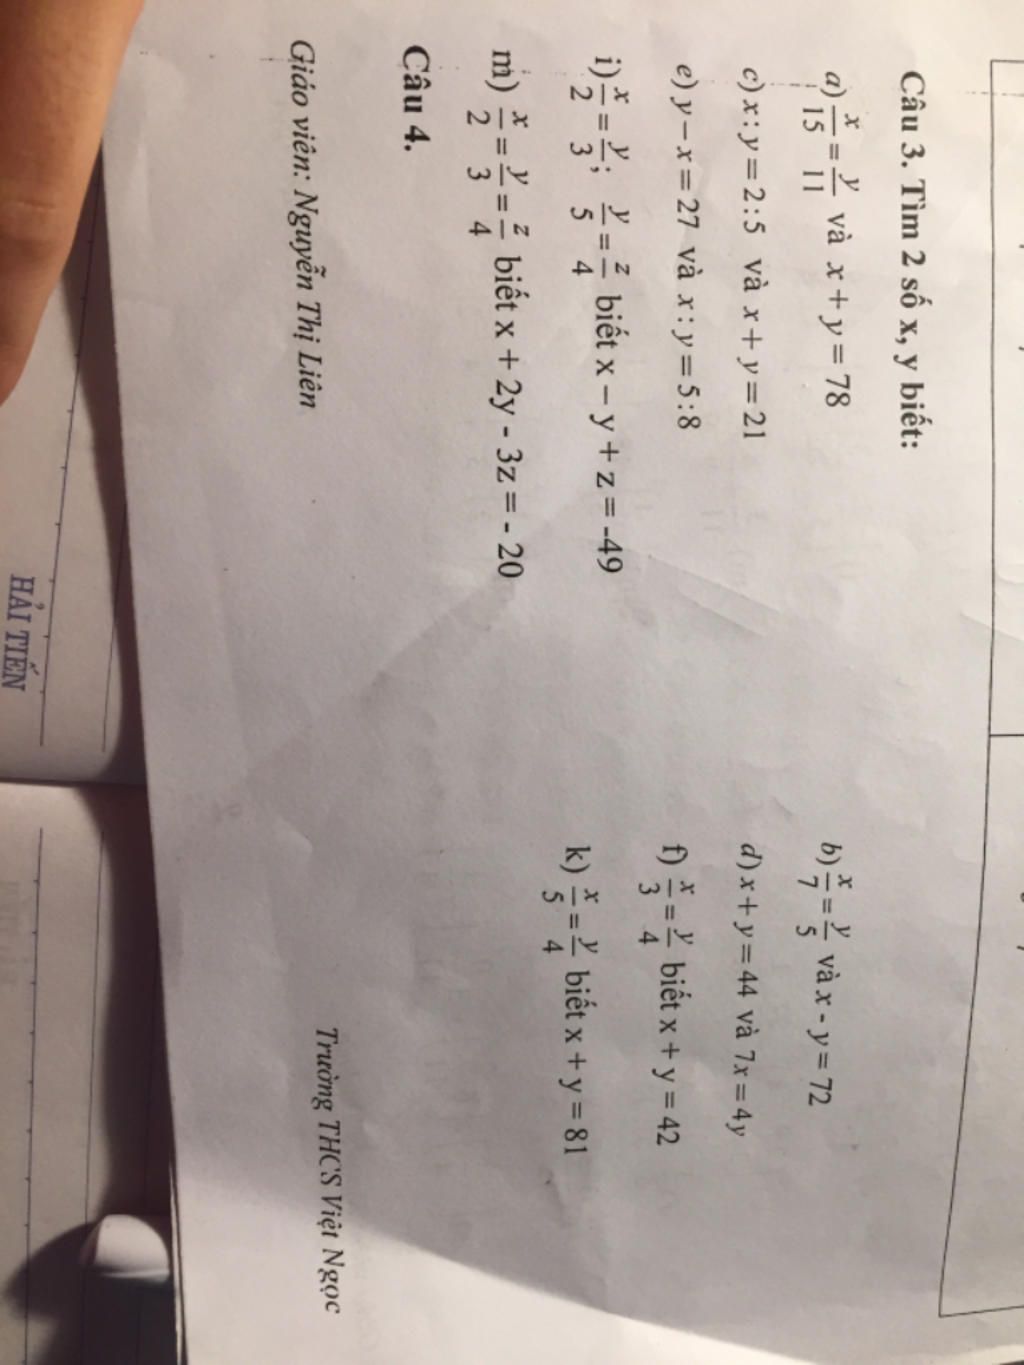 Câu 3. Tìm 2 số x, y biết:
a) x/15 = y/11 và x + y = 78
b) x/7 = y/5 và x - y = 72
c) x : y = 2 : 5 và x + y = 21
d) x + y = 44 và 7x = 4y
e) y – x = 27 và x : y = 5 : 8
f) x/3 = y/4 biết x + y = 42
i) x/2 = y/3; y/5 = z/4 biết x – y + z = -49
k) x/5 = y/4 biết x + y = 81
m) x/2 = y/3 = z/4 biết x + 2y - 3z = - 20
Câu 4.
Giáo viên: Nguyễn Thị Liên
Trường THCS Việt Ngọc
HẢI TIẾN